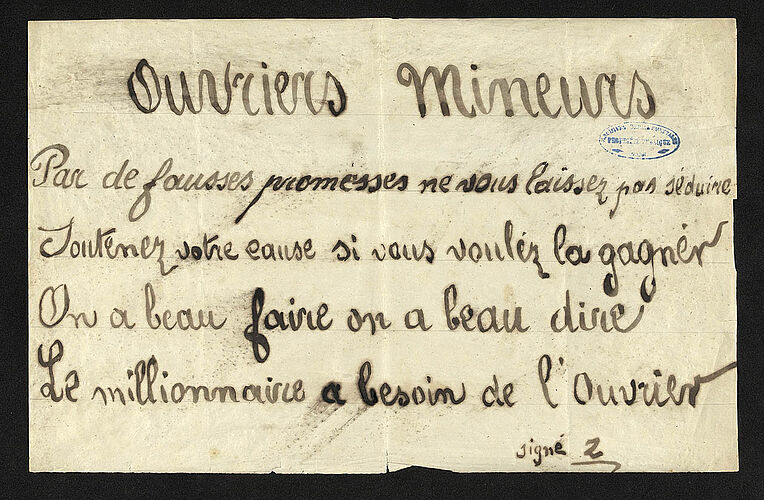 Ouvriers Mineurs
Par de fausses promesses ne vous laissez pas séduire
Soutenez votre cause si vous voulez la gagner
On a beau faire on a beau dire
Le millionnaire a besoin de l'Ouvrier
signé 2